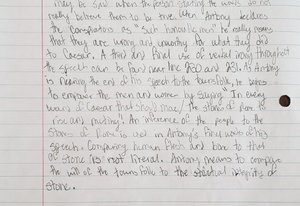 may be said when the person stating the words do not
really believe them to be true. When "Antony declares
the conspirators as "such honorable men" he really means
that they are wrong and unworthy for what they did
to Caesar. A third and final use of verbal irony throughout
the speech can be found near line 230 and 231. As Antony
is nearing the end of his speech to the townsfolk, he tries
to empower the men and women by saying "In every
wound of Caesar that should move/ the stones of Rome to
rise and mutiny". An inference of the people to the
stones of Rome is used in Antony's final words of his
speech. Comparing human flesh and bone to that
of stone is not literal. Antony means to compare
the will of the towns folk to the structural integrity of
stone.